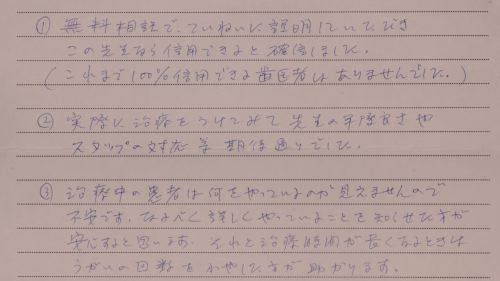 ① 無料相談で、ていねいに説明していただき
この先生なら信用できると確信しました。
(これまで100%信用できる歯医者はありませんでした。)
② 実際に治療をうけてみて先生の手際良さや
スタッフの対応等期待通りでした。
③ 治療中の患者は何をやっているのか見えませんので
不安です。なるべく詳しくやっていることを知らせた方が
安心すると思います。それと治療時間が長くなるときは
うがいの回数をふやした方が助かります。